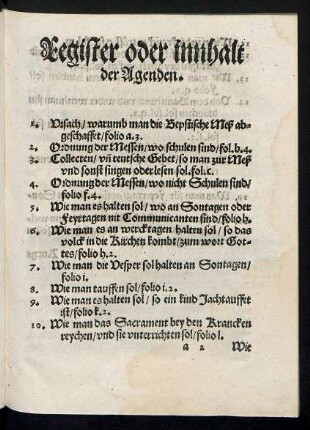 Register oder innhalt
der Agenden.
1. Vrsach/ warumb man die Bepstische Meß ab-
geschaffet/ folio a.3.
2. Ordnung der Messen/ wo schulen sind/ fol.b.4.
3. Collecten/ vñ teutsche Gebet/ so man zur Meß
vnd sonst singen oder lesen sol.fol.c.
4. Ordnung der Messen/ wo nicht Schulen sind/
folio f.4.
5. Wie man es halten sol/ wo an Sontagen oder
Feyrtagen nit Communicanten sind/ folio h.
6. Wie man es an wercktagen halten sol/ so das
volck in die Kirchen kombt/ zum wort Got-
tes/ folio h.2.
7. Wie man die Vesper sol halten an Sontagen/
folio i.
8. Wie man tauffen sol/ folio i.2.
9. Wie man es halten sol/ so ein kind Jachtaufft
ist/ folio k.2.
10. Wie man das Sacrament bey den Krancken
reychen/ vnd sie vnterrichten sol/ folio l.
a 2 Wie